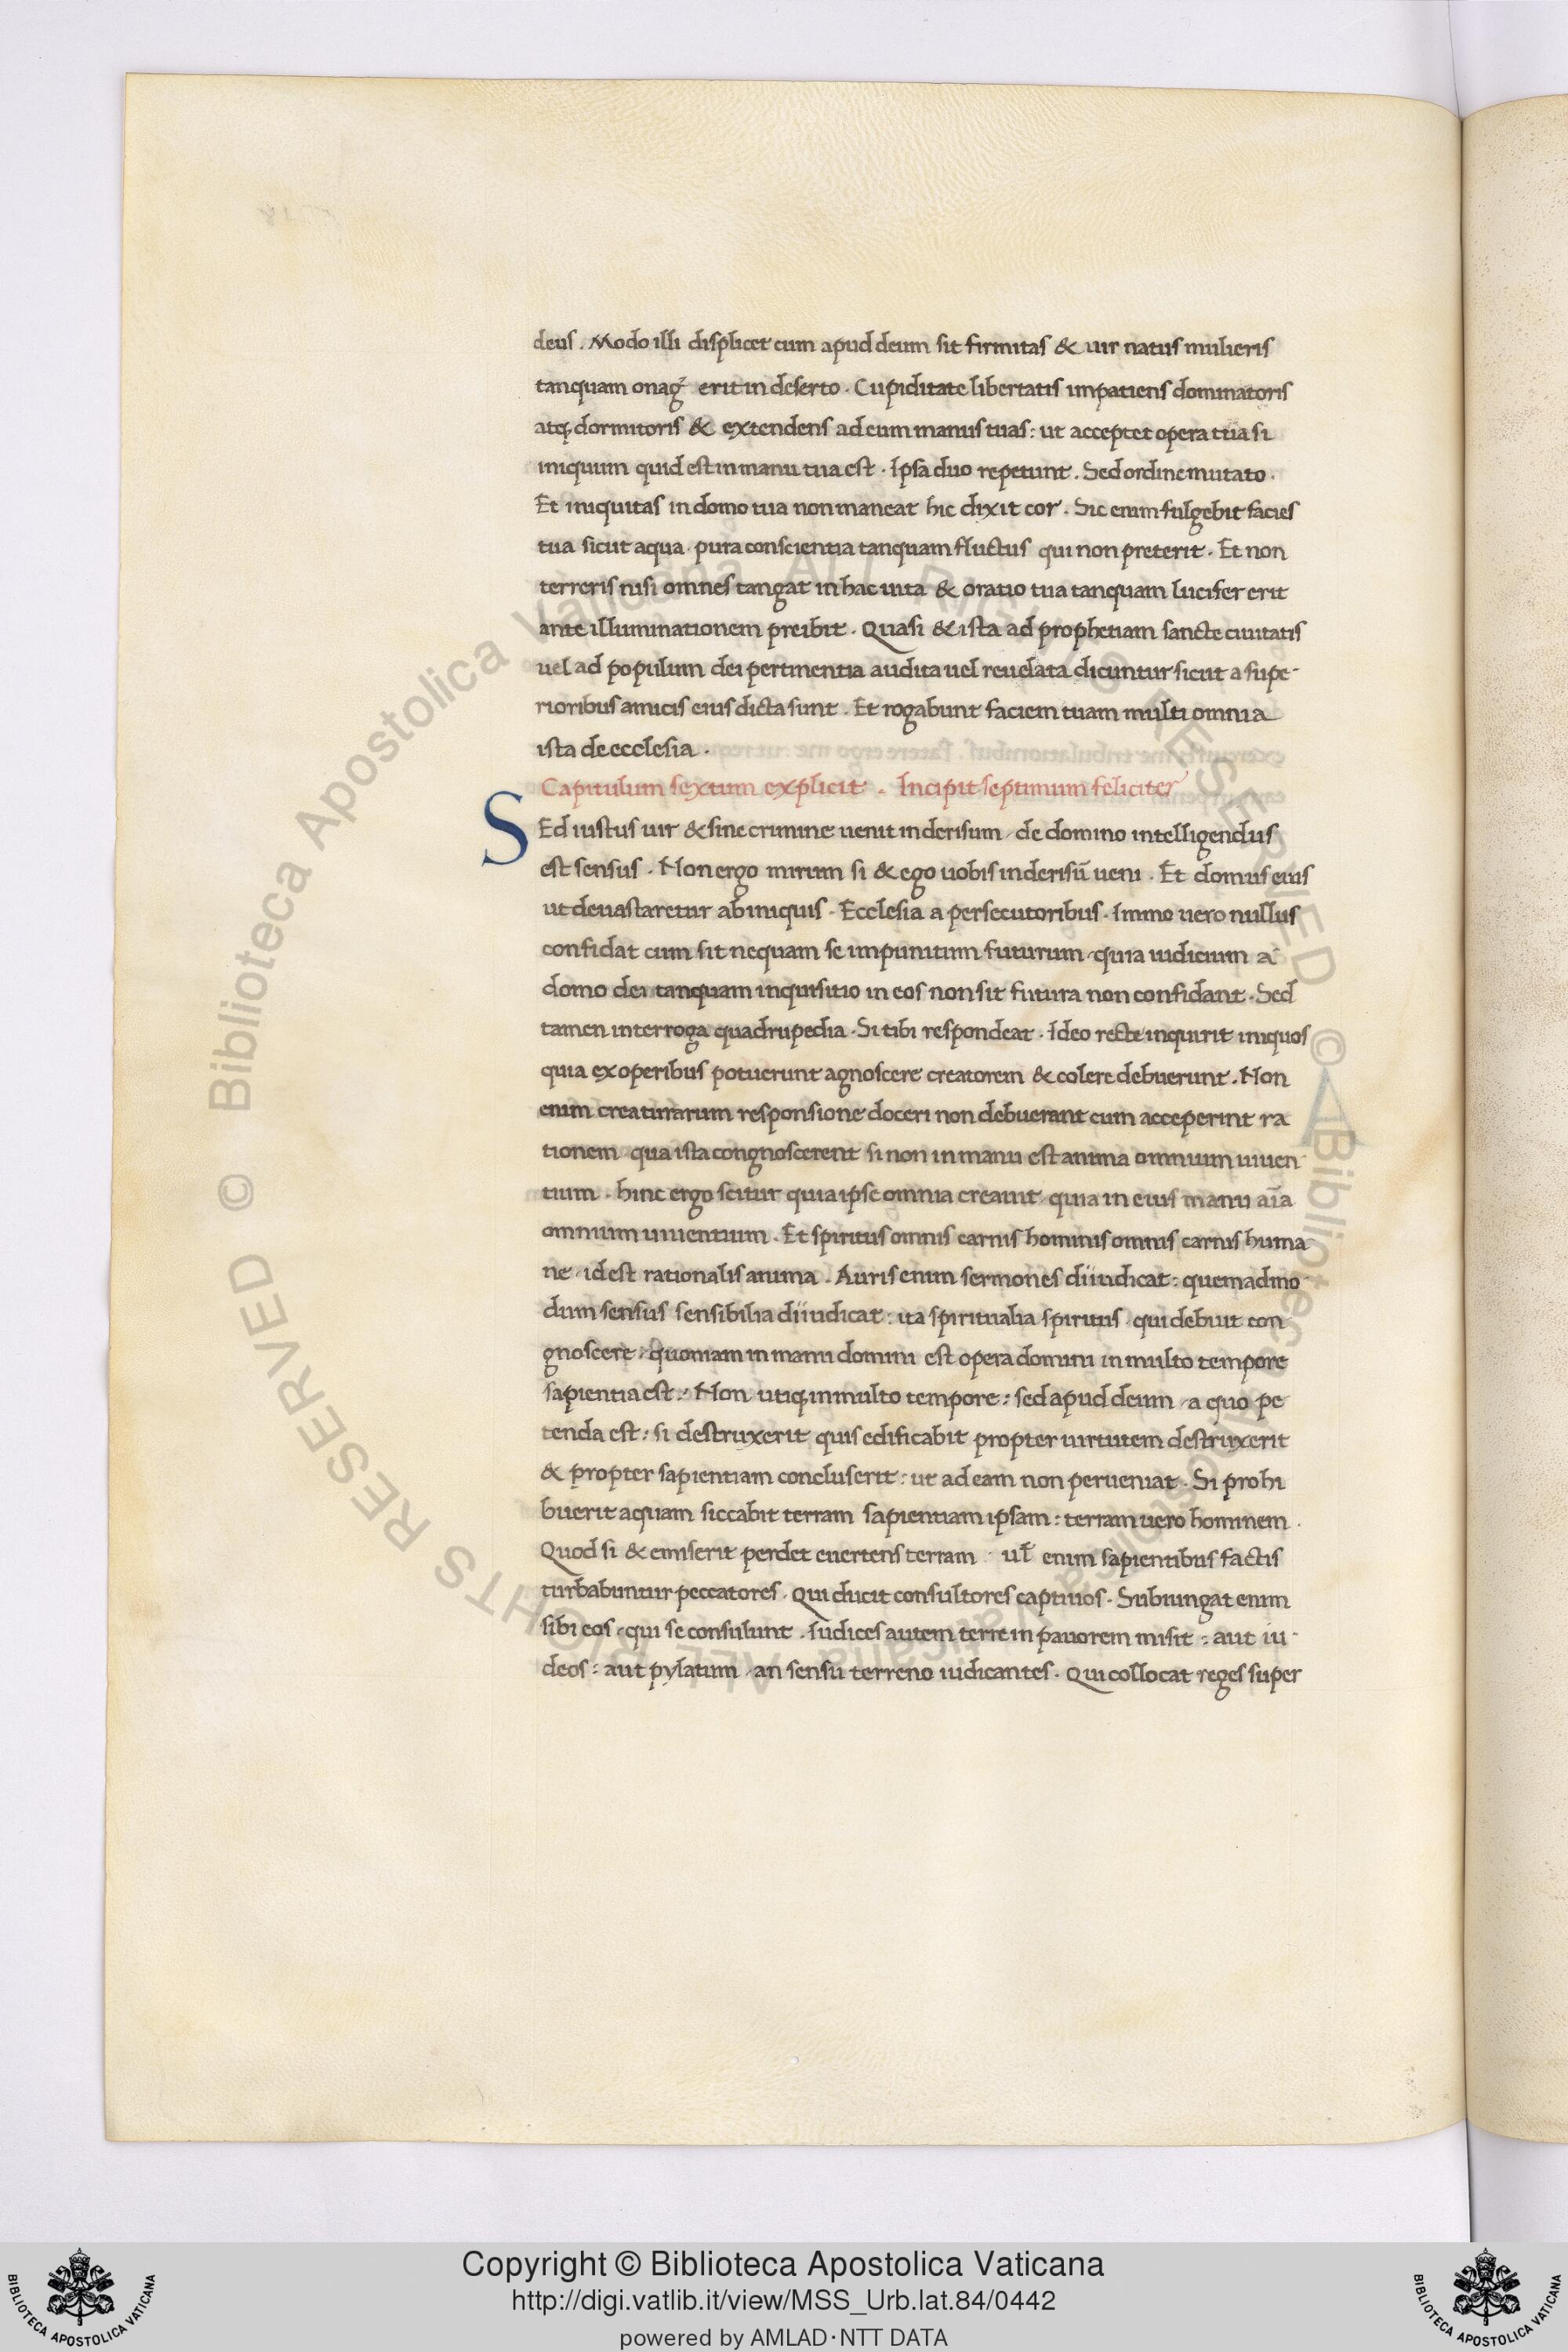 deus. Modo illi displicet cum apud deum sit firmitas & uir natus mulieris
tanquam onag̃ erit in deserto. Cupiditate libertatis impatiens dominatoris
atq; dormitoris & extendens ad eum manus tuas: ut acceptet opera tua si
iniquum quid est in manu tua est. Ipsa duo repetunt. Sed ordine mutato.
Et iniquitas in domo tua non maneat hic dixit cor. Sic enim fulgebit facies
tua sicut aqua. pura conscientia tanquam fluctus qui non preterit. Et non
terreris nisi omnes tangat in hac uita & oratio tua tanquam lucifer erit
ante illuminationem preibit. Quasi & ista ad prophetiam sancte ciuitatis
uel ad populum dei pertinentia audita uel reuelata dicuntur sicut a supe-
rioribus amicis eius dicta sunt. Et rogabunt faciem tuam multi omnia
ista de ecclesia.
Capitulum sextum explicit. Incipit septimum feliciter
SEd iustus uir & sine crimine uenit in derisum / de domino intelligendus
est sensus. Non ergo mirum si & ego uobis in derisū ueni. Et domus eius
ut deuastaretur ab iniquis. Ecclesia a persecutoribus. Immo uero nullus
confidat cum sit nequam se impunitum futurum / quia iudicium a
domo dei tanquam inquisitio in eos non sit futura non confidant. Sed
tamen interroga quadrupedia. Si tibi respondeat. Ideo recte inquirit iniquos
quia ex operibus potuerunt agnoscere creatorem & colere debuerunt. Non
enim creaturarum responsione doceri non debuerant cum acceperint ra
tionem / qua ista congnoscerent si non in manu est anima omnium uiuen-
tium. hinc ergo scitur quia ipse omnia creauit / quia in eius manu aīa
omnium uiuentium. Et spiritus omnis carnis hominis omnis carnis huma
ne / id est rationalis anima. Auris enim sermones diiudicat: quemadmo-
dum sensus sensibilia diiudicat: ita spiritualia spiritus / qui debuit con
gnoscere / quoniam in manu domini est opera domini in multo tempore
sapientia est: Non utiq; in multo tempore: sed apud deum / a quo pe
tenda est: si destruxerit quis edificabit propter uirtutem destruxerit
& propter sapientiam concluserit: ut ad eam non perueniat. Si prohi
buerit aquam siccabit terram sapientiam ipsam: terram uero hominem.
Quod si & emiserit perdet euertens terram. ul̄ enim sapientibus factis
turbabuntur peccatores. Qui ducit consultores captiuos. Subiungat enim
sibi eos / qui se consulunt. Iudices autem terre in pauorem misit: aut iu-
deos: aut pylatum / an sensu terreno iudicantes. Qui collocat reges super
© Biblioteca Apostolica Vaticana ALL RIGHTS RESERVED
© Biblioteca Apostolica Vaticana ALL RIGHTS RESERVED
Copyright © Biblioteca Apostolica Vaticana
http://digi.vatlib.it/view/MSS_Urb.lat.84/0442
powered by AMLAD·NTT DATA
BIBLIOTECA APOSTOLICA VATICANA
BIBLIOTECA APOSTOLICA VATICANA